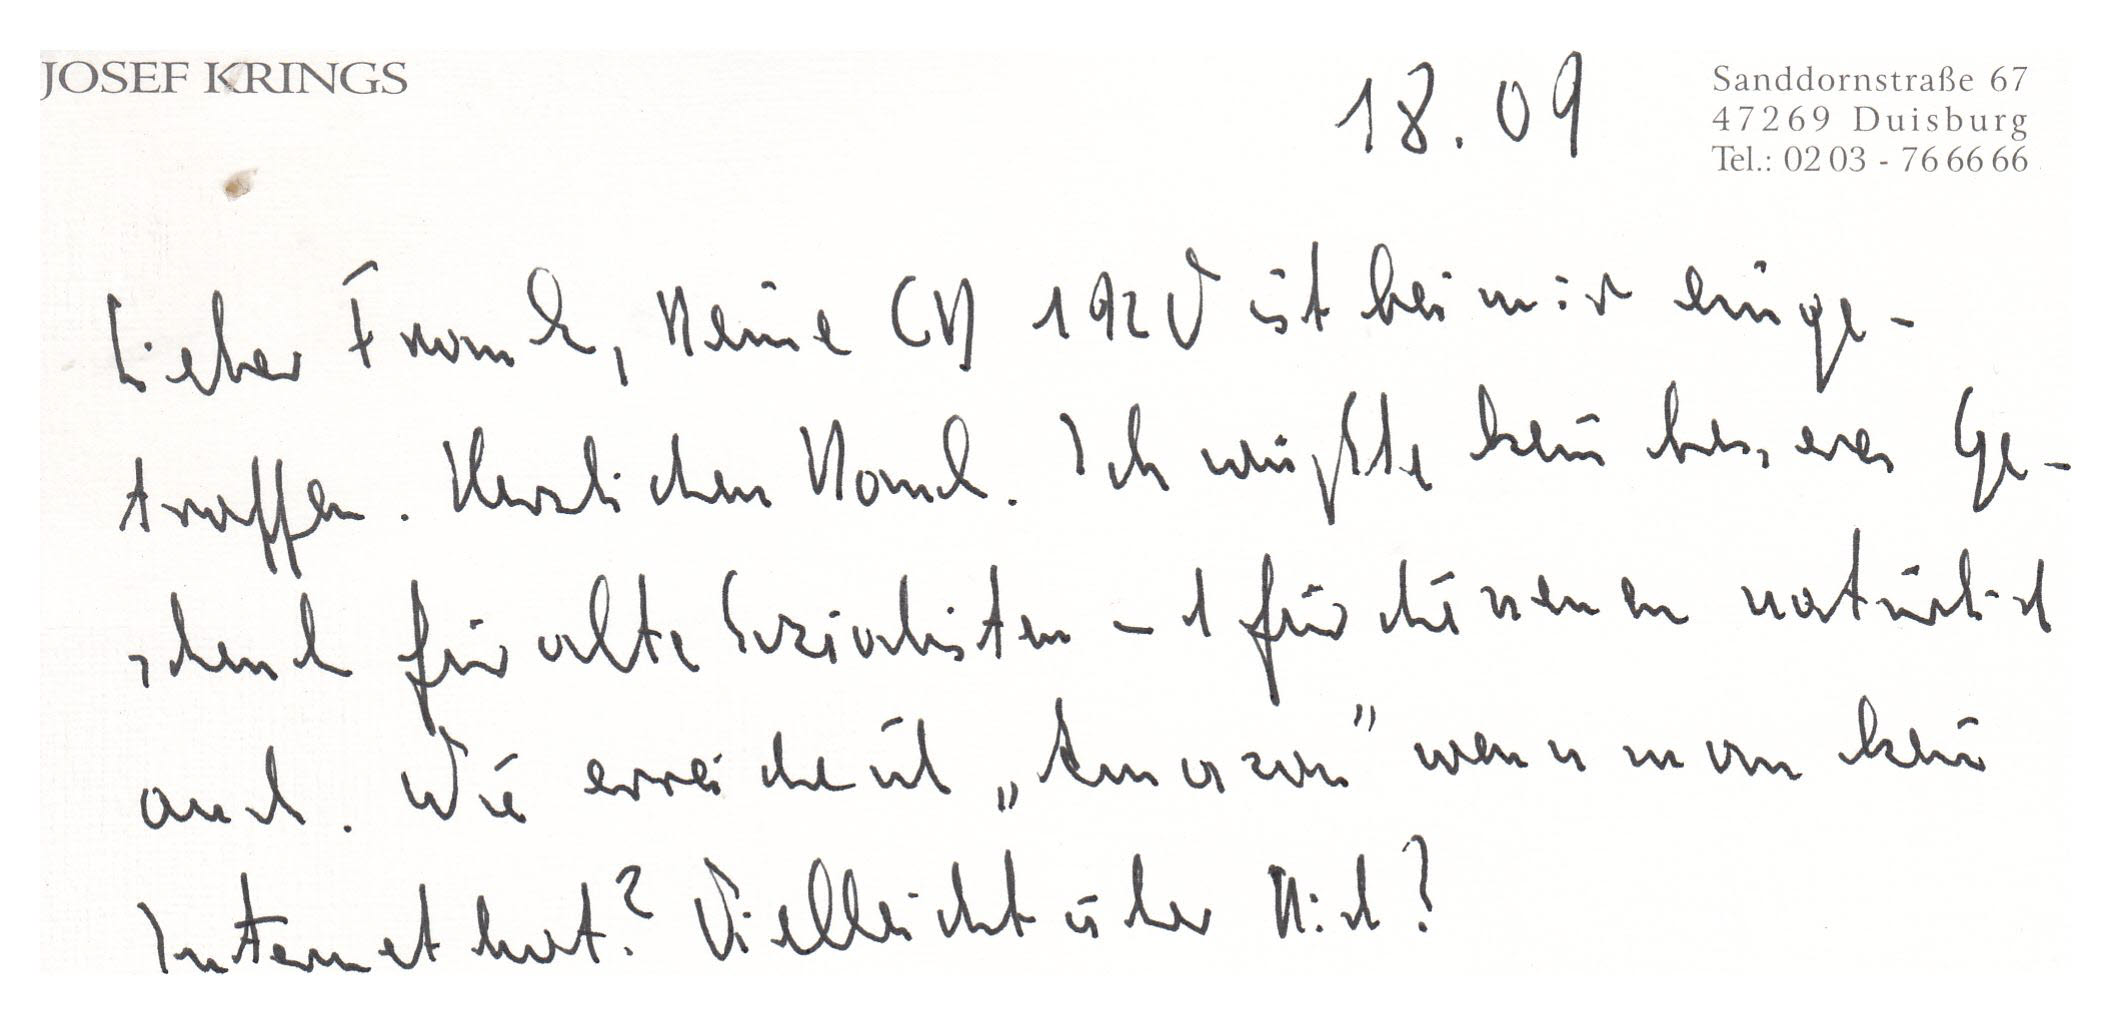 JOSEF KRINGS
18.09
Sanddornstraße 67
47269 Duisburg
Tel.: 02 03 - 76 66 66
Lieber Frank, Deine CD ist bei mir einge-
troffen. Herzlichen Dank. Ich wüßte kein besseres Ge-
schenk für alte Sozialisten – für die neuen natürlich
auch. Wie erreiche ich „Amazon" wenn man kein
Internet hat? Vielleicht über Dich?